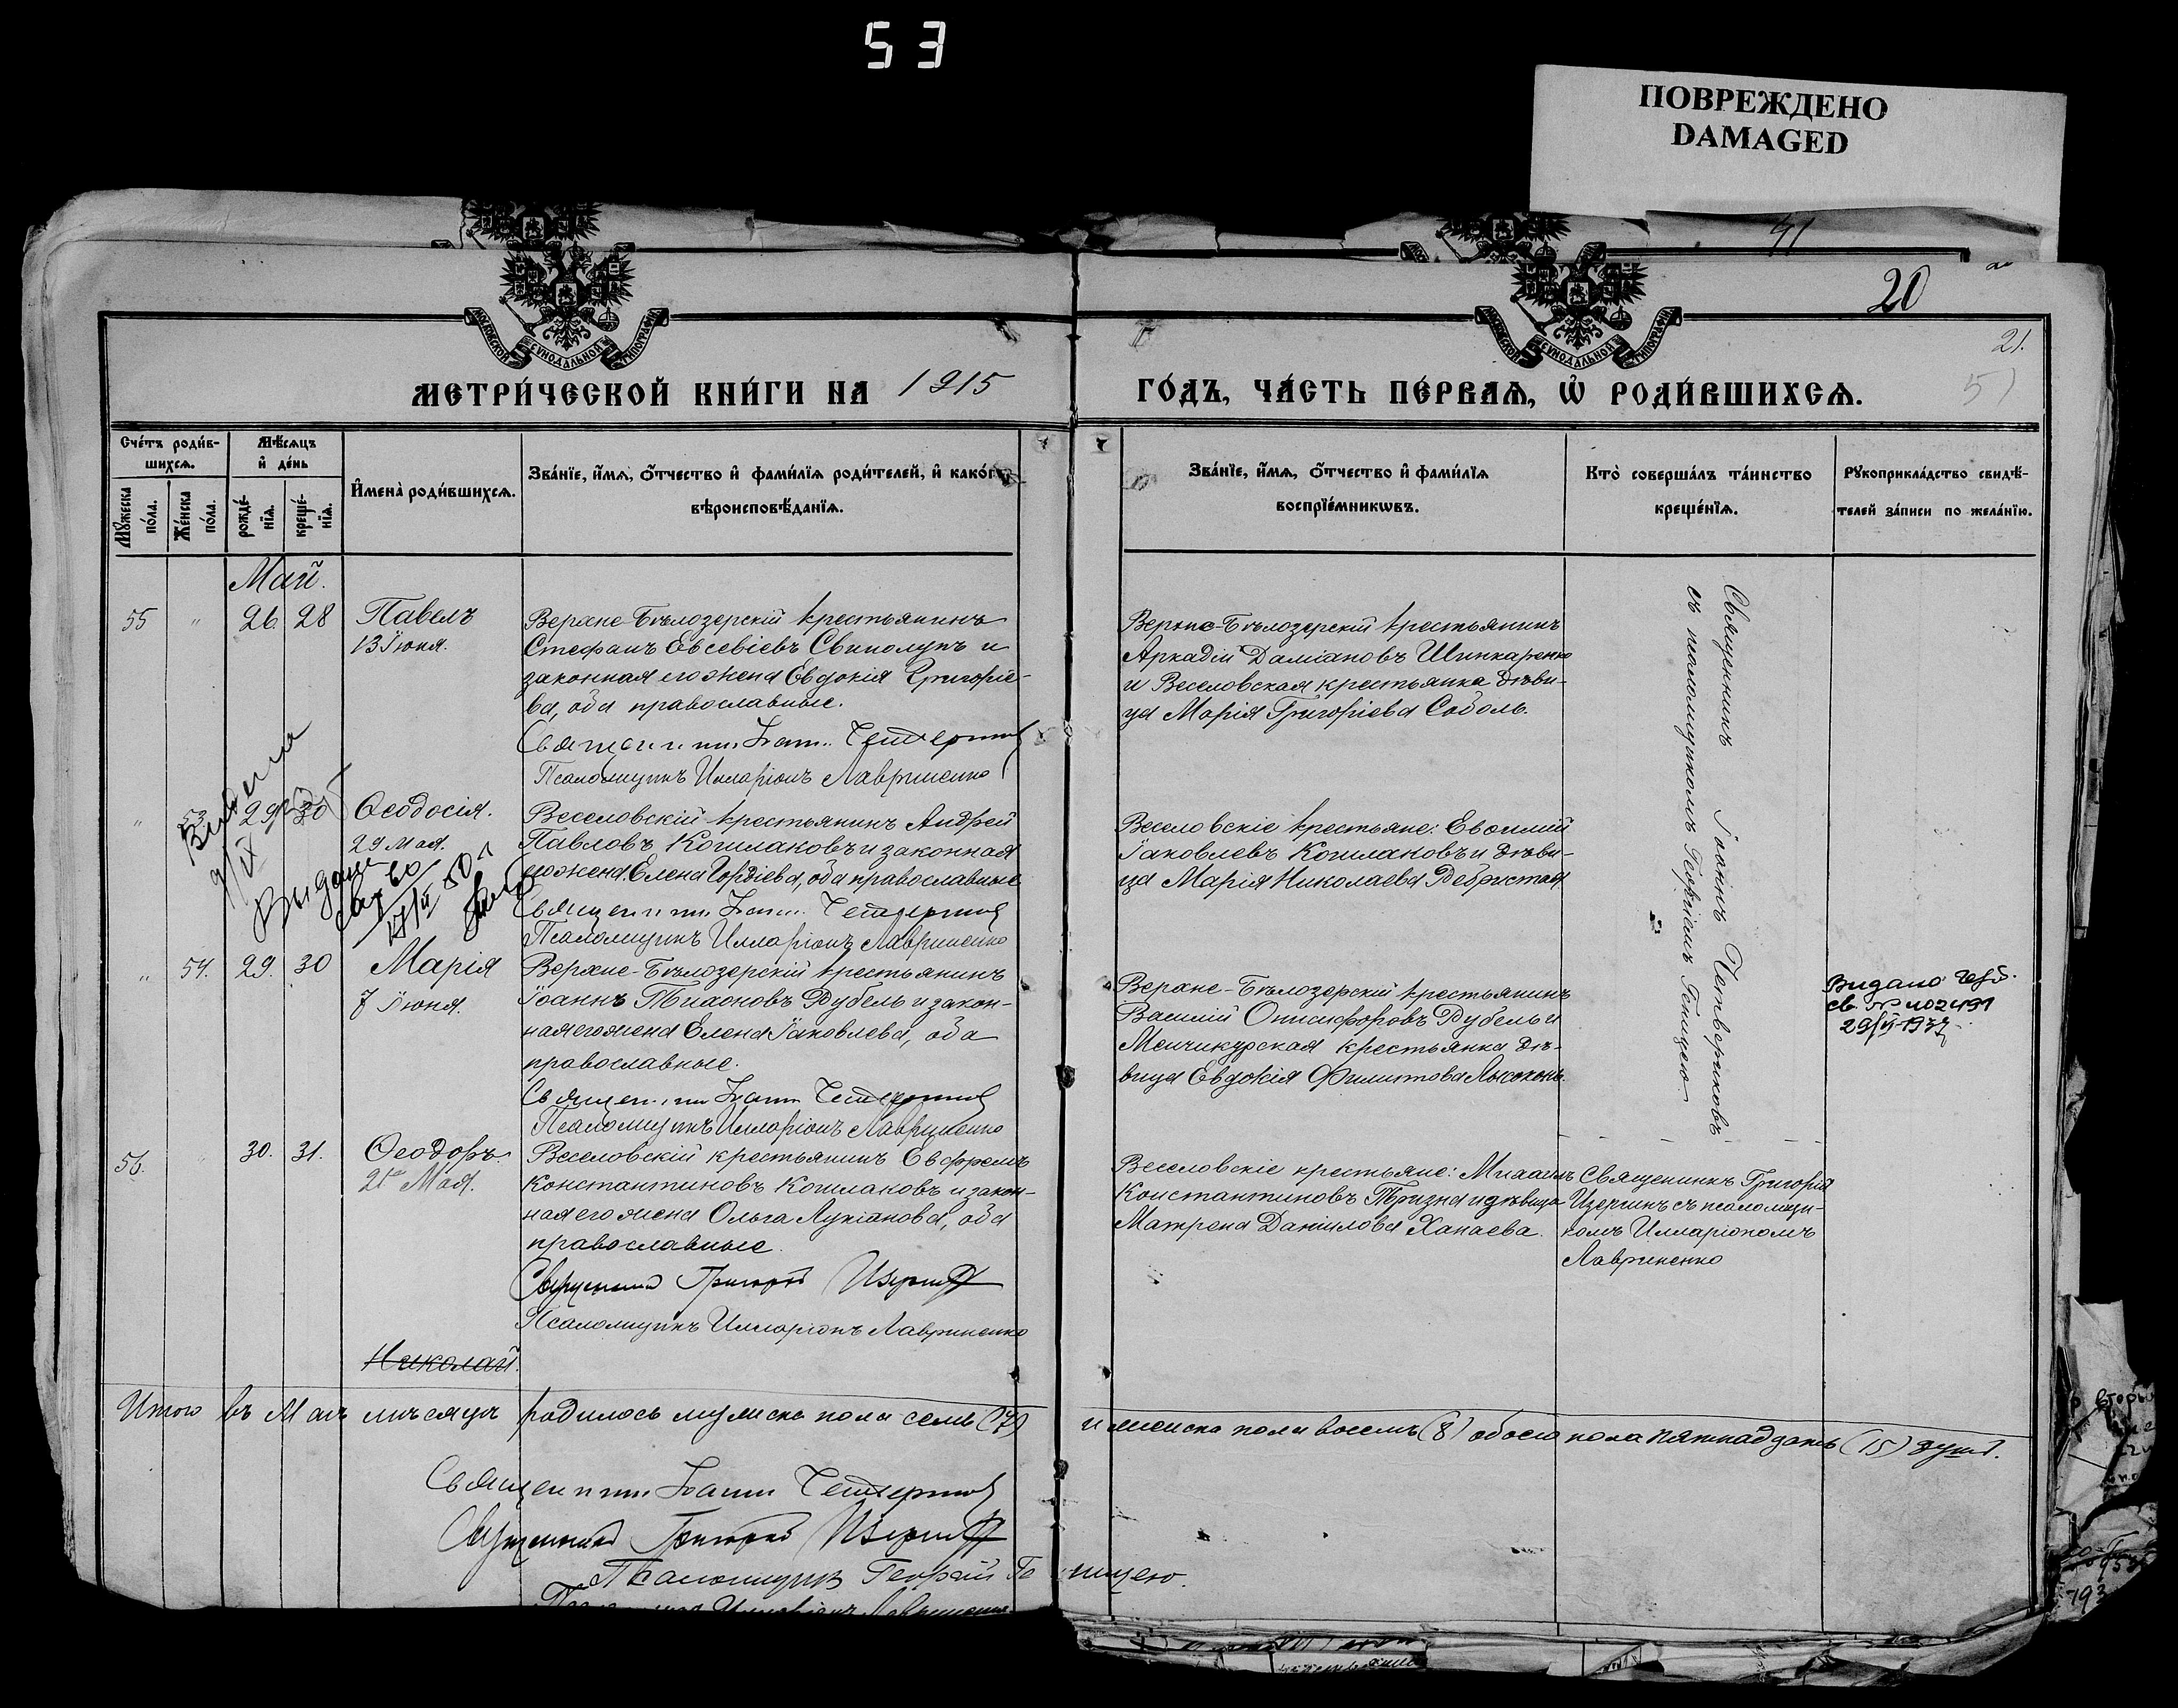 53
ПОВРЕЖДЕНО
DAMAGED
41
20
21.
51
МОСКОВСКОЙ СѴНОДАЛЬНОЙ ТИПОГРАФІИ
МОСКОВСКОЙ СѴНОДАЛЬНОЙ ТИПОГРАФІИ
МЕТРИ́ЧЕСКОЙ КНИ́ГИ НА 1915
ГО́ДЪ, ЧА́СТЬ ПЕ́РВАѦ, Ѡ҆ РОДИ́ВШИХСѦ.
Сче́тъ роди́в-
шихсѧ.
Мꙋ́жеска
по́ла.
Же́нска
по́ла.
Мѣ́сѧцъ
и҆ де́нь
рожде́-
нїѧ.
креще́-
нїѧ.
И҆мена̀ роди́вшихсѧ.
Зва́нїе, и҆́мѧ, ѻ҆́тчество и҆ фами́лїѧ роди́телей, и҆ како́гѡ
вѣроисповѣ́данїѧ.
Зва́нїе, и҆́мѧ, ѻ҆́тчество и҆ фами́лїѧ
воспрїе́мникѡвъ.
Кто̀ соверша́лъ та́инство
креще́нїѧ.
Рꙋкоприкла́дство свидѣ́-
телей за́писи по жела́нїю.
Май.
55 " 26. 28 Павелъ
13 Іюня.
Верхне-Бѣлозерскій крестьянинъ
Стефанъ Евсевіевъ Свинолупъ и
законная его жена Евдокія Григоріе-
ва, оба православные.
Псаломщикъ Илларіонъ Лавриненко
Верхне-Бѣлозерскій крестьянинъ
Аркадій Даміановъ Шинкаренко
и Веселовская крестьянка дѣви-
ца Марія Григоріева Соболь.
Священникъ Іоаннъ Четвериковъ
съ псаломщикомъ Георгіемъ Геницею.
" 53. 29. 30 Ѳеодосія.
29 Мая.
Веселовскій крестьянинъ Андрей
Павловъ Кошлаковъ и законная
его жена Елена Гордіева, оба православные
Псаломщикъ Илларіонъ Лавриненко
Веселовскіе крестьяне:
Іаковлевъ Кошлаковъ и дѣви-
ца Марія Николаева
" 54. 29. 30 Марія
7 Іюня.
Верхне-Бѣлозерскій крестьянинъ
Іоаннъ Тихоновъ Дубель и закон-
ная его жена Елена Іаковлева, оба
православные.
Псаломщикъ Илларіонъ Лавриненко
Верхне-Бѣлозерскій крестьянинъ
Василій Онисифоровъ Дубель и
Менчикурская крестьянка дѣ-
вица Евдокія Филиппова Лысоконь.
Видано
св.
56. 30. 31. Ѳеодоръ.
21го Мая.
Веселовскій крестьянинъ Евфремъ
Константиновъ Кошлаковъ и закон-
ная его жена Ольга Лукіанова, оба
православные.
Священникъ Григорій Изергинъ
Псаломщикъ Илларіонъ Лавриненко
Веселовскіе крестьяне: Михаилъ
Константиновъ Тризна и дѣвица
Матрена Даніилова Ханаева.
Священникъ Григорій
Изергинъ съ псаломщи-
комъ Илларіономъ
Лавриненко
Николай.
Итого въ Маѣ мѣсяцѣ родилось мужска пола семь (7) и женска пола восемь (8) обоего пола пятнадцать (15) душъ.
Священникъ Григорій Изергинъ
Псаломщикъ Георгій Геницею.